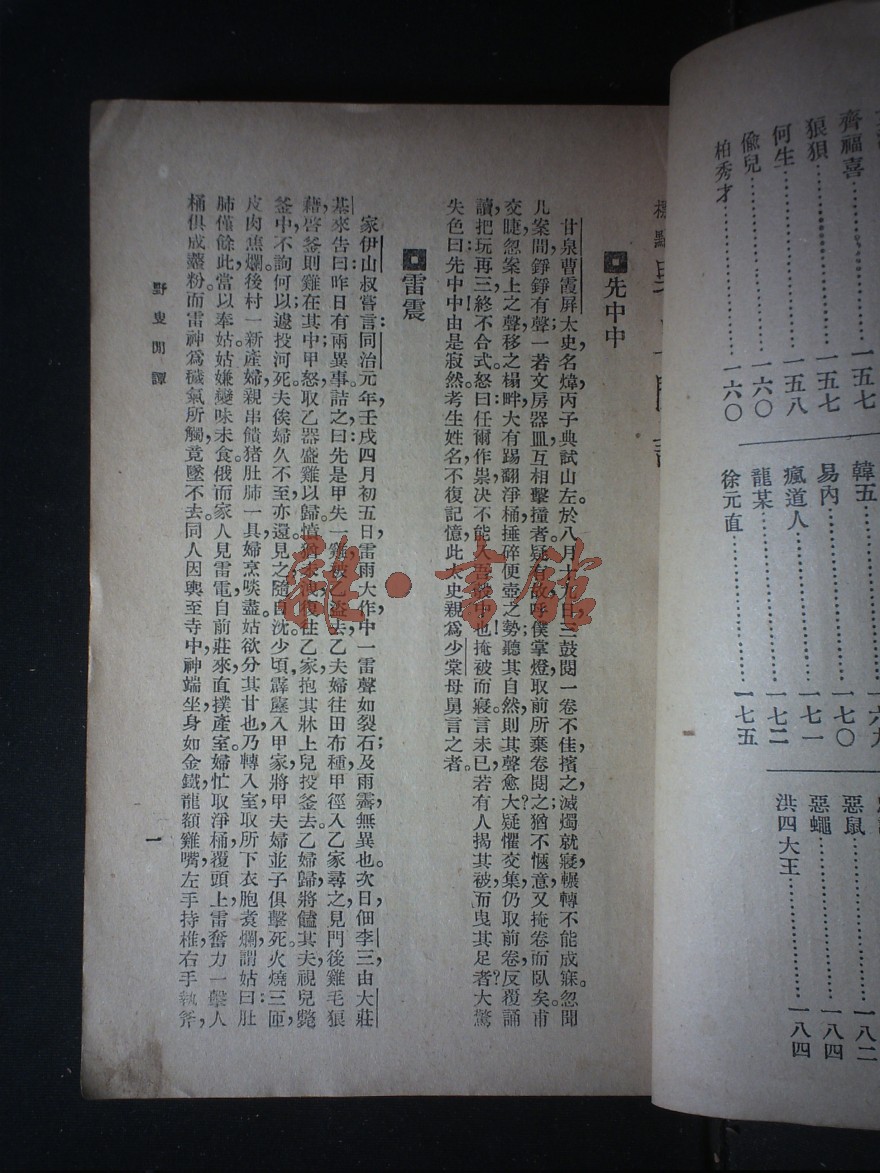 齊福喜……一五七
狼狽……一五七
何生……一五八
偷兒……一六〇
柏秀才……一六〇
韓五……一六九
易內……一七〇
瘋道人……一七一
龍某……一七二
徐元直……一七五
惡鼠……一八二
惡蠅……一八四
洪四大王……一八四
先中中
甘泉曹霞屏太史名煒，丙子典試山左。於八月十九日三鼓閱一卷不佳，擯之，滅燭就寢，輾轉不能成寐。忽聞
几案間錚錚有聲，一若文房器皿，互相擊撞者。疑有故，呼僕掌燈，取前所棄卷閱之，猶不愜意，又掩卷而臥矣。甫
交睫，忽案上之聲，移之榻畔，大有踢翻淨桶，捶碎便壺之勢！聽其自然，則其聲愈大？疑懼交集，仍取前卷，反覆誦
讀，把玩再三，終不合式。怒曰：任爾作祟，决不能入吾彀中也！掩被而寢。言未已，若有人揭其被，而曳其足者？大驚
失色曰：先中中，由是寂然。考生姓名，不復記憶，此太史親爲少棠母舅言之者。
雷震
家伊山叔嘗言：同治元年，壬戌四月初五日，雷雨大作，中一雷聲如裂石；及雨霽，無異也。次日，佃李三由大莊
基來告曰：昨日有兩異事，詰之曰：先是甲失一雞，被乙盜去，乙夫婦往田布種，甲徑入乙家尋之，見門後雞毛狼
藉，啓釜則雞在其中；甲怒取乙器盛雞以歸，憤猶未洩，復往乙家，抱其牀上兒，投釜去。乙婦歸，將饁其夫，視兒斃
釜中，不詢何以，遽投河死。夫俟婦久不至，亦還。見之，隨自沈。少頃，霹靂入甲家，將甲夫婦並子俱擊死，火燒三匝，
皮肉焦爛。後村一新產婦，親串饋猪肚肺一具，婦烹啖盡。姑欲分其甘也，乃轉入室，取所下衣胞煮爛，謂姑曰：肚
肺僅餘此，當以奉姑，姑嫌變味，未食。俄而家人見雷電，自前莊來，直撲產室。婦忙取淨桶，覆頭上，雷奮力一擊，人
桶俱成虀粉。而雷神爲穢氣所觸，竟墜不去。同人因輿至寺中，神端坐，身如金鐵，龍額雞嘴，左手持椎，右手執斧，
野叟閒譚
一
雒·書館